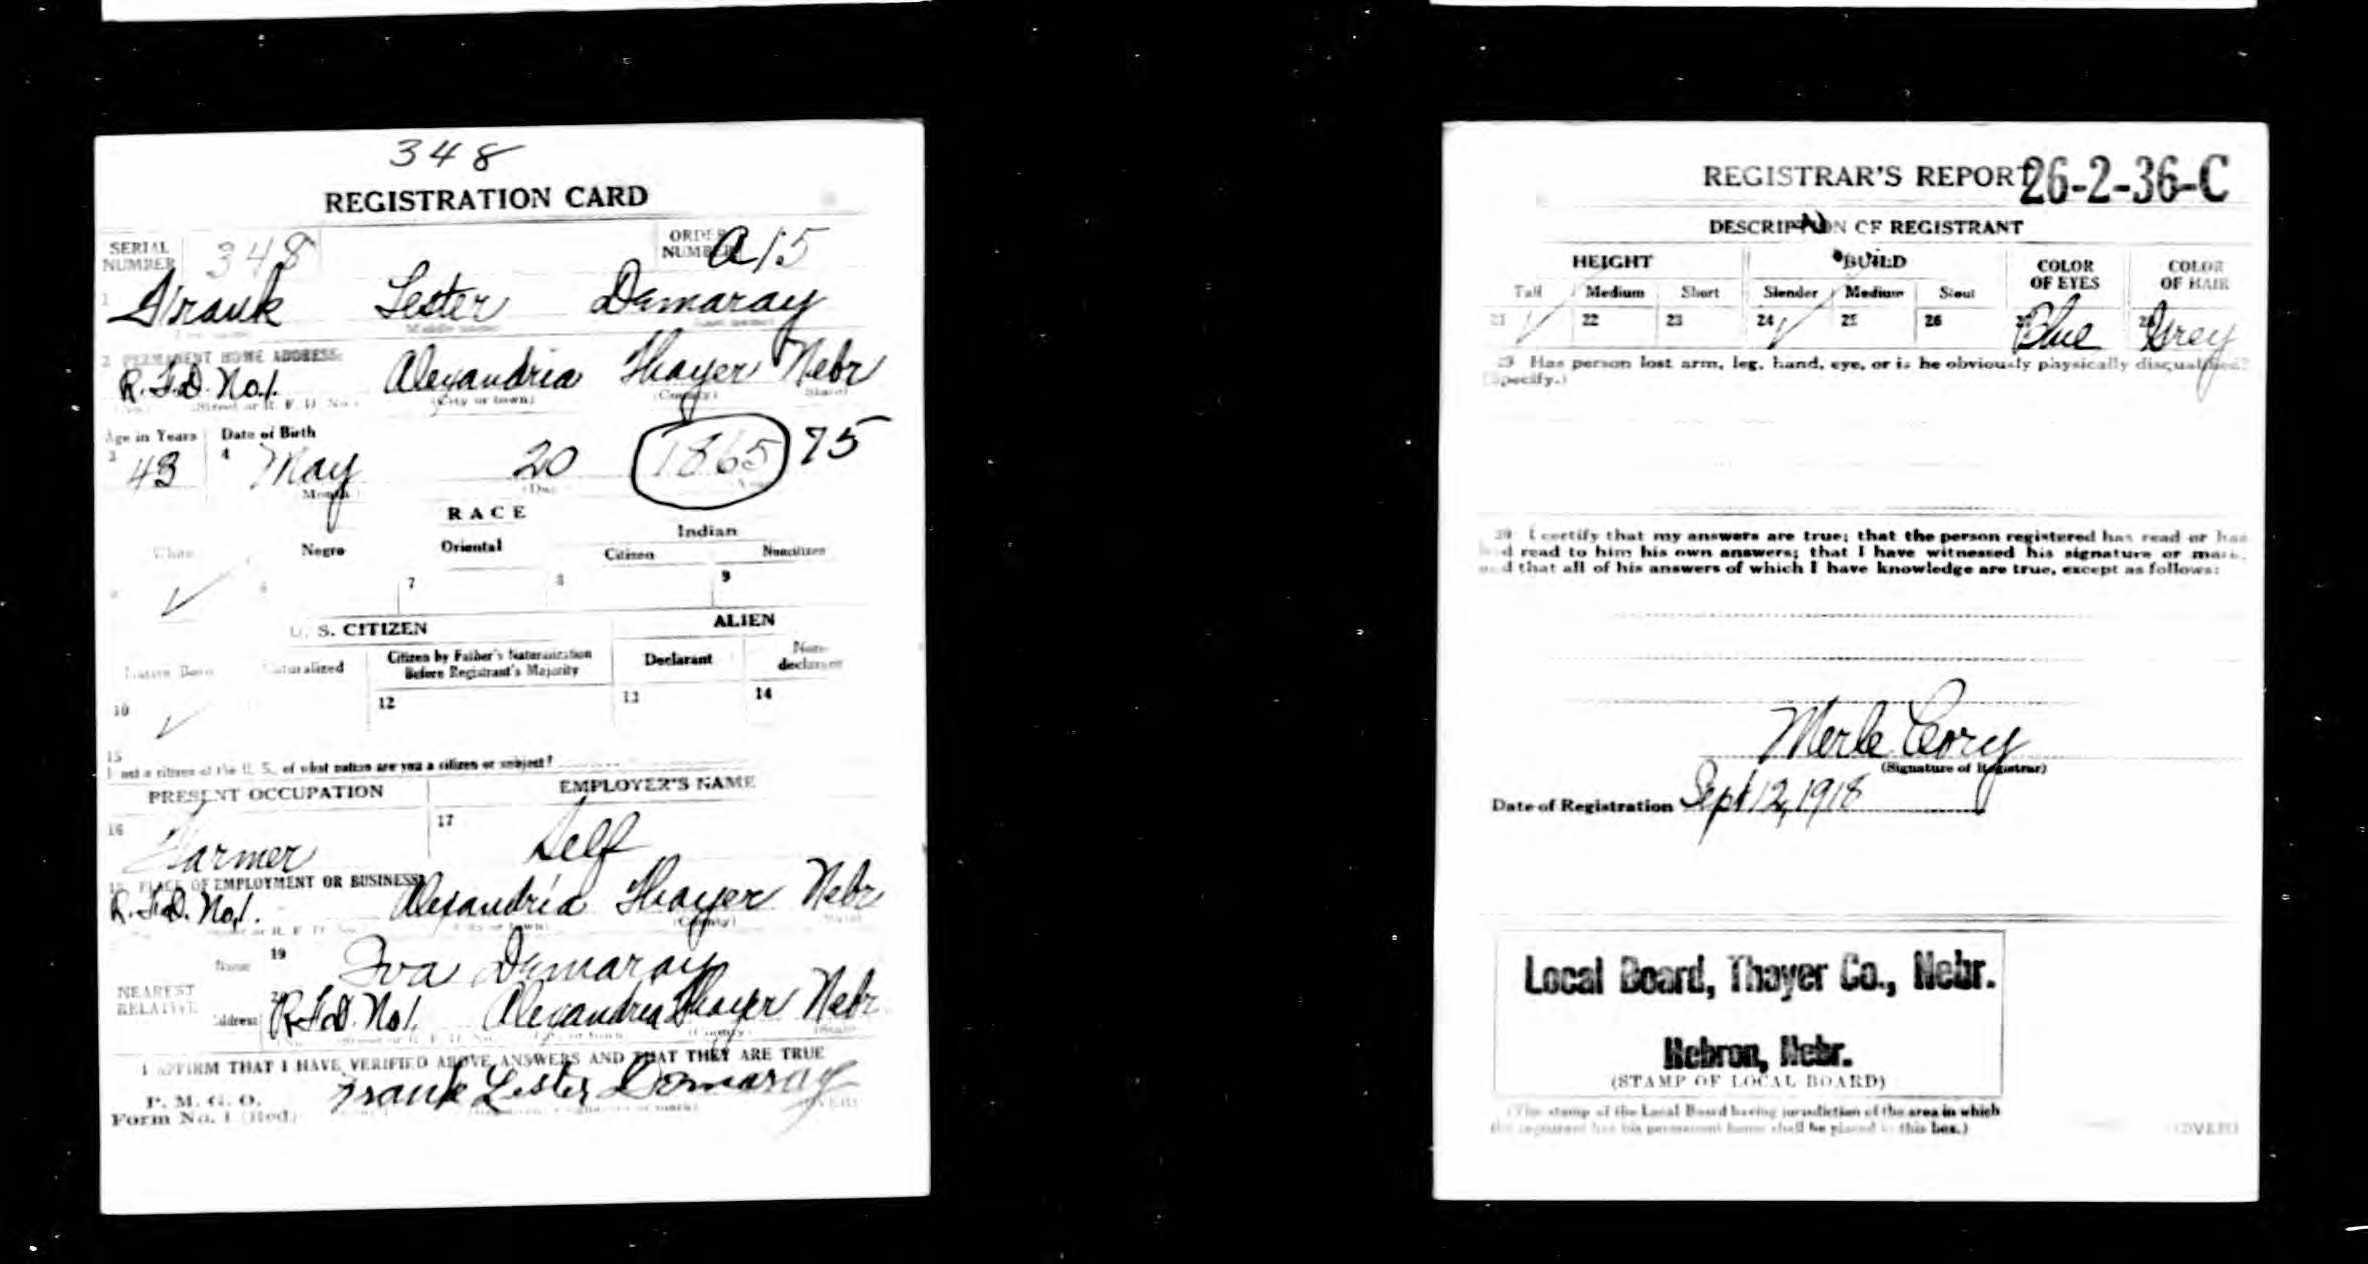 348
REGISTRATION CARD
SERIAL NUMBER 348 ORDER NUMBER A15
1 Frank Lester Demaray
(Middle name)
2 PERMANENT HOME ADDRESS:
R.F.D. No.1. Alexandria Thayer Nebr
(Street or R. F. D. No.) (City or town) (County) (State)
Age in Years Date of Birth
3 43 4 May 20 1865 75
Month (Day
RACE
White Negro Oriental Indian
Citizen Noncitizen
6 7 8 9
U. S. CITIZEN ALIEN
Native Born Naturalized Citizen by Father's Naturalization Before Registrant's Majority Declarant Non-declarant
10 12 13 14
15
If not a citizen of the U. S., of what nation are you a citizen or subject?
PRESENT OCCUPATION EMPLOYER'S NAME
16 Farmer 17 Self
18 PLACE OF EMPLOYMENT OR BUSINESS:
R.F.D. No,1. Alexandria Thayer Nebr
(County)
NEAREST RELATIVE
Name 19 Iva Demaray
Address R.F.D. No1. Alexandria Thayer Nebr
I AFFIRM THAT I HAVE VERIFIED ABOVE ANSWERS AND THAT THEY ARE TRUE
P. M. G. O.
Form No. 1 (Red) Frank Lester Demaray
(OVER)
REGISTRAR'S REPORT 26-2-36-C
DESCRIPTION OF REGISTRANT
HEIGHT BUILD COLOR OF EYES COLOR OF HAIR
Tall Medium Short Slender Medium Stout
21 22 23 24 25 26 Blue Grey
29 Has person lost arm, leg, hand, eye, or is he obviously physically disqualified?
(Specify.)
30 I certify that my answers are true; that the person registered has read or has
had read to him his own answers; that I have witnessed his signature or mark,
and that all of his answers of which I have knowledge are true, except as follows:
Merle Cory
(Signature of Registrar)
Date of Registration Sept 12, 1918
Local Board, Thayer Co., Nebr.
Hebron, Nebr.
(STAMP OF LOCAL BOARD)
(The stamp of the Local Board having jurisdiction of the area in which
the registrant has his permanent home shall be placed in this box.)
(OVER)